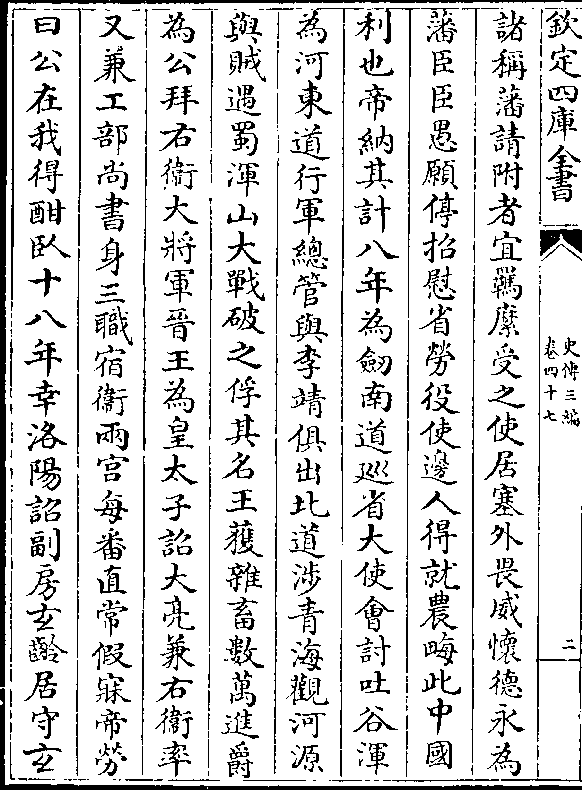 欽定四庫全書
史傳三編
卷四十七
二
諸稱藩請附者宜羈縻受之使居塞外畏威懷德永為
藩臣臣愚願停招慰省勞役使邊人得就農畮此中國
利也帝納其計八年為劒南道廵省大使會討吐谷渾
為河東道行軍總管與李靖俱出北道涉青海觀河源
與賊遇蜀渾山大戰破之俘其名王獲雜畜數萬進爵
為公拜右衛大將軍晉王為皇太子詔大亮兼右衛率
又兼工部尚書身三職宿衞兩宮每番直常假寐帝勞
曰公在我得酣臥十八年幸洛陽詔副房玄齡居守玄